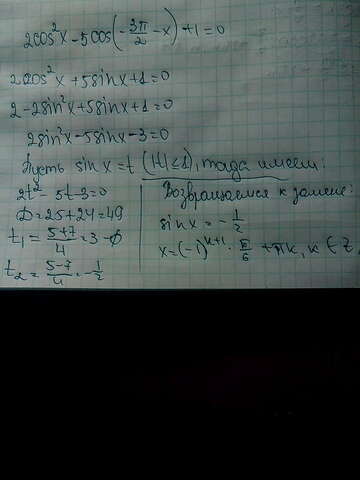 2cos²x - 5cos(-3π/2 - x) + 1 = 0
2cos²x + 5sinx + 1 = 0
2 - 2sin²x + 5sinx + 1 = 0
2sin²x - 5sinx - 3 = 0
Пусть sin x = t (|t| ≤ 1), тогда имеем:
2t² - 5t - 3 = 0
D = 25 + 24 = 49
t₁ = (5+7)/4 = 3 - ∅
t₂ = (5-7)/4 = -1/2
Возвращаемся к замене:
sinx = -1/2
x = (-1)^(k+1) · π/6 + πk, k ∈ Z.